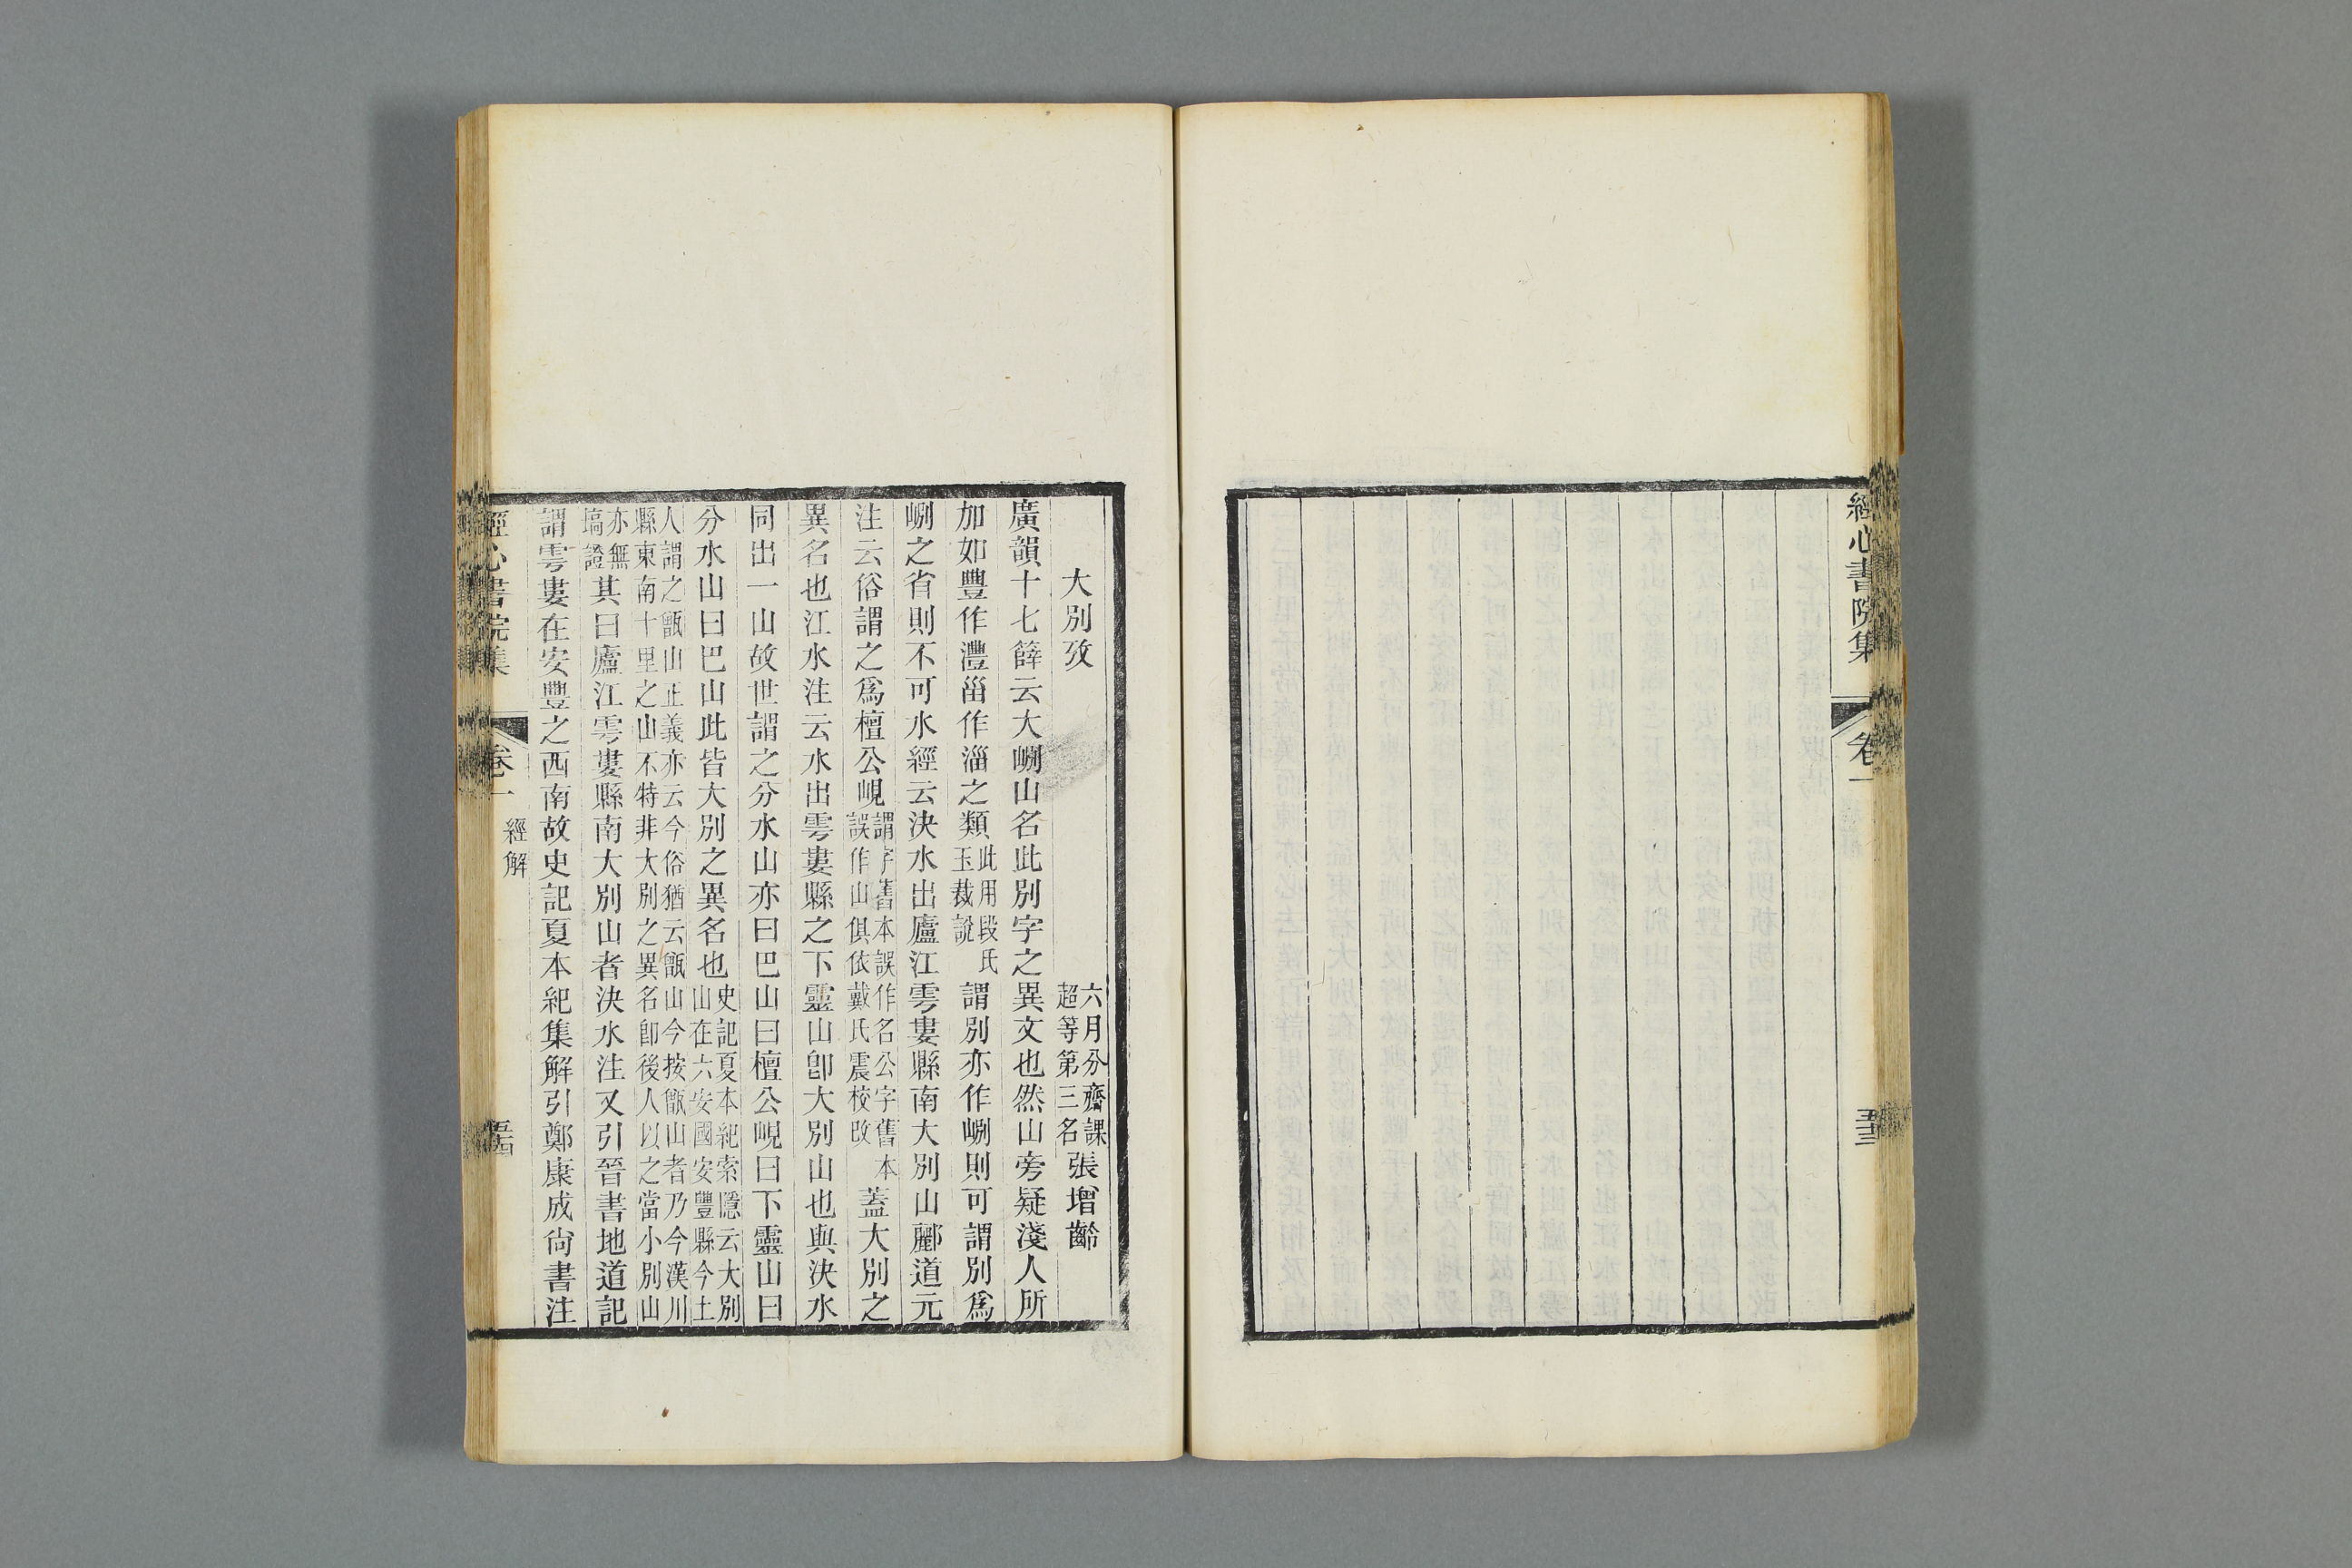 經心書院集
卷一
五十三
大別攷
六月分齋課
超等第三名
張增齡
廣韻十七薛云大峢山名此別字之異文也然山旁疑淺人所
加如豐作灃甾作淄之類此用段氏玉裁說謂別亦作峢則可謂別爲
峢之省則不可水經云決水出廬江雩婁縣南大別山酈道元
注云俗謂之爲檀公峴謂字舊本誤作名公字舊本誤作山俱依戴氏震校改蓋大別之
異名也江水注云水出雩婁縣之下靈山卽大別山也與決水
同出一山故世謂之分水山亦曰巴山曰檀公峴曰下靈山曰
分水山曰巴山此皆大別之異名也史記夏本紀索隱云大別山在六安國安豐縣今土
人謂之甑山正義亦云今俗猶云甑山今按甑山者乃今漢川縣東南十里之山不特非大別之異名卽後人以之當小別山
亦無塙證其曰廬江雩婁縣南大別山者決水注又引晉書地道記
謂雩婁在安豐之西南故史記夏本紀集解引鄭康成尙書注
經心書院集
卷一
經解
五十四